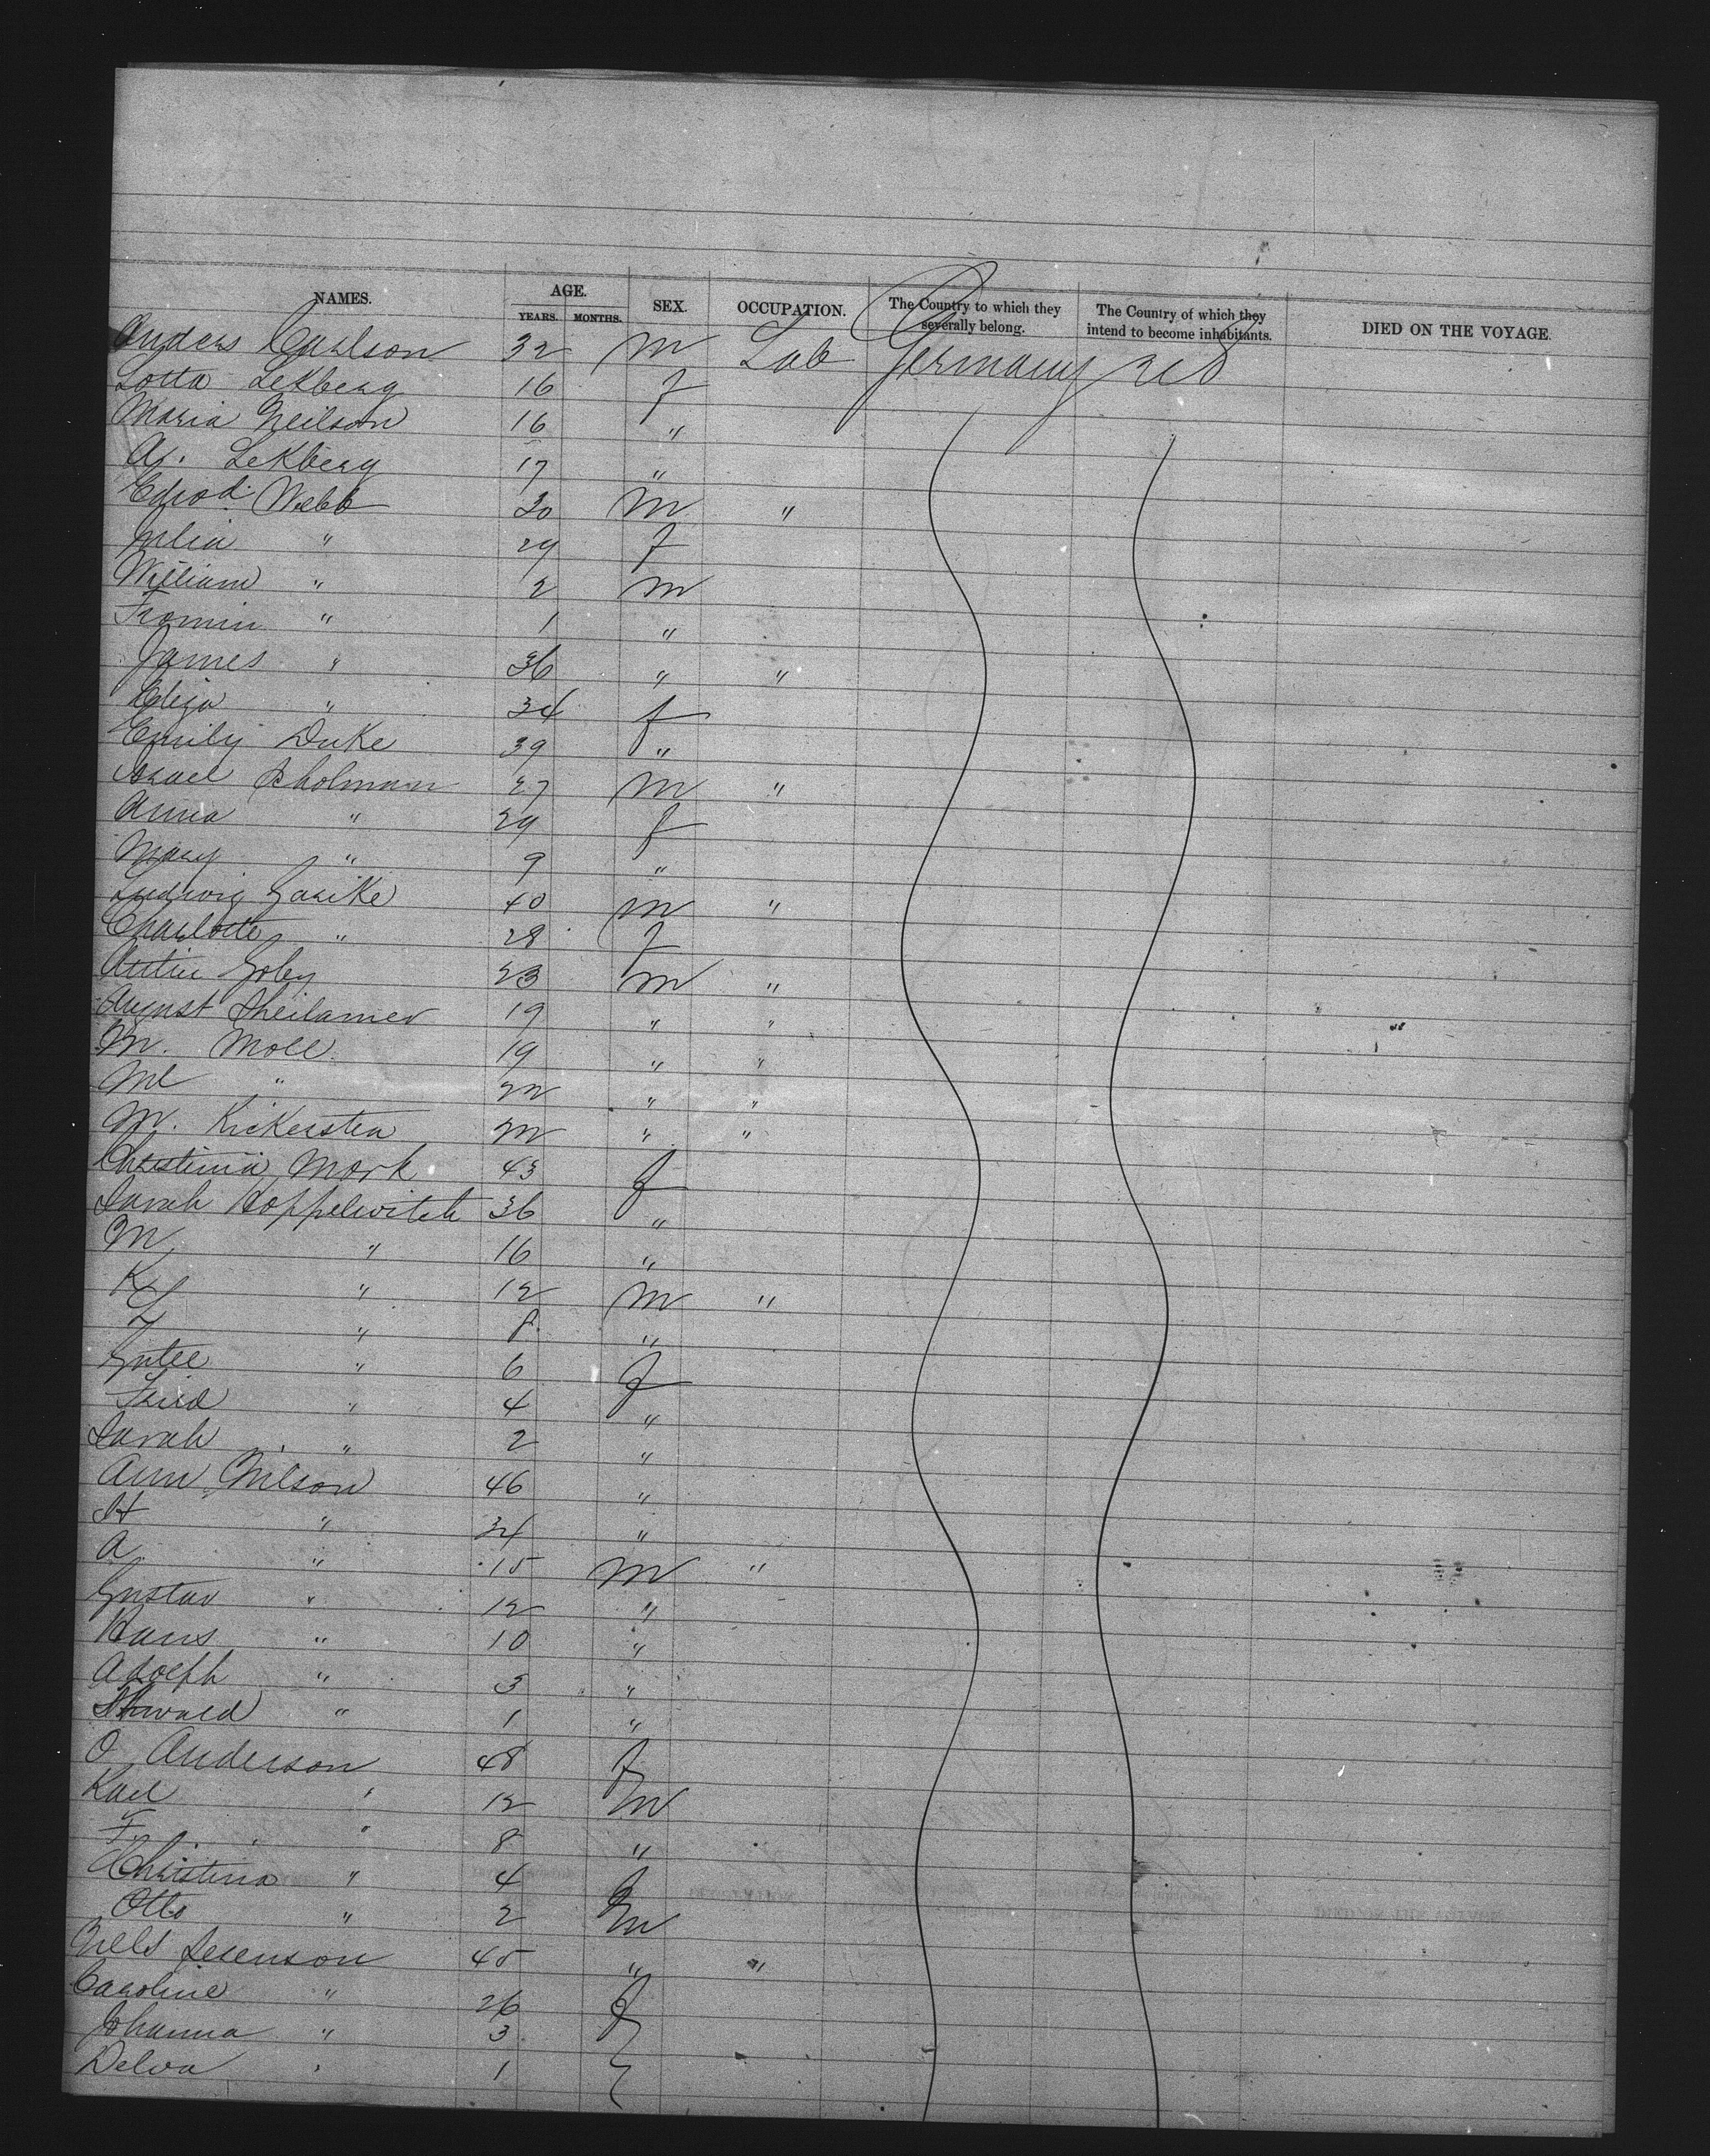 NAMES. AGE. YEARS. MONTHS. SEX. OCCUPATION. The Country to which they severally belong. The Country of which they intend to become inhabitants. DIED ON THE VOYAGE.
Anders Carlson 32 m Lab Germany US
Lotta Lekberg 16 f
Maria Neilson 16 "
A. Lekberg 17 "
Webb 30 m "
Julia " 29 f
William " 2 m
" 1 "
James " 36 " "
Eliza " 34 f
Emily Duke 39 "
Sholman 27 m "
Anna " 29 f
Mary " 9 "
Ludwig Garike 40 m "
Charlotte " 28 f
Goby 23 m "
August 19 " "
M. Moll 19 " "
Ml " 22 " "
M. Kickersten 22 " "
Christina Mork 43 f
Sarah Koppelwitch 36 "
M " 16 "
K " 12 m "
L " 8 "
Gutel " 6 f
" 4 "
Sarah " 2 "
Ann Nilson 46 "
H " 34 "
A " 15 m "
Gustav " 12 "
Hans " 10 "
Adolph " 3 "
" 1 "
O Anderson 48 f
Karl " 12 m
F. " 8 "
Christina " 4 f
Otto " 2 m
Nels 45 " "
Caroline " 26 f
Johanna " 3
Delva " 1